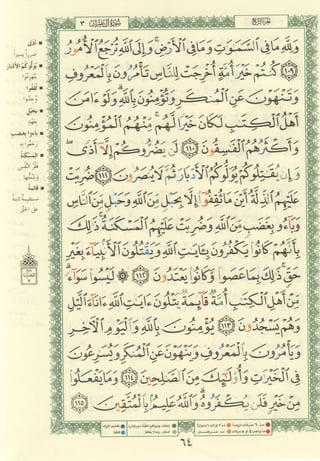 سُورَةُ آلِ عِمْرَانَ ٣
وَلِلَّهِ مَا فِي السَّمَاوَاتِ وَمَا فِي الْأَرْضِ وَإِلَى اللَّهِ تُرْجَعُ الْأُمُورُ
١٠٩ كُنْتُمْ خَيْرَ أُمَّةٍ أُخْرِجَتْ لِلنَّاسِ تَأْمُرُونَ بِالْمَعْرُوفِ
وَتَنْهَوْنَ عَنِ الْمُنْكَرِ وَتُؤْمِنُونَ بِاللَّهِ وَلَوْ ءَامَنَ
أَهْلُ الْكِتَابِ لَكَانَ خَيْرًا لَهُمْ مِنْهُمُ الْمُؤْمِنُونَ
وَأَكْثَرُهُمُ الْفَاسِقُونَ ١١٠ لَنْ يَضُرُّوكُمْ إِلَّا أَذًى
وَإِنْ يُقَاتِلُوكُمْ يُوَلُّوكُمُ الْأَدْبَارَ ثُمَّ لَا يُنْصَرُونَ ١١١ ضُرِبَتْ
عَلَيْهِمُ الذِّلَّةُ أَيْنَ مَا ثُقِفُوا إِلَّا بِحَبْلٍ مِنَ اللَّهِ وَحَبْلٍ مِنَ النَّاسِ
وَبَاءُو بِغَضَبٍ مِنَ اللَّهِ وَضُرِبَتْ عَلَيْهِمُ الْمَسْكَنَةُ ذَلِكَ
بِأَنَّهُمْ كَانُوا يَكْفُرُونَ بِـَٔايَاتِ اللَّهِ وَيَقْتُلُونَ الْأَنْبِيَاءَ بِغَيْرِ
حَقٍّ ذَلِكَ بِمَا عَصَوْا وَكَانُوا يَعْتَدُونَ ١١٢ لَيْسُوا سَوَاءً
مِنْ أَهْلِ الْكِتَابِ أُمَّةٌ قَائِمَةٌ يَتْلُونَ ءَايَاتِ اللَّهِ ءَانَاءَ اللَّيْلِ
وَهُمْ يَسْجُدُونَ ١١٣ يُؤْمِنُونَ بِاللَّهِ وَالْيَوْمِ الْآخِرِ
وَيَأْمُرُونَ بِالْمَعْرُوفِ وَيَنْهَوْنَ عَنِ الْمُنْكَرِ وَيُسَارِعُونَ
فِي الْخَيْرَاتِ وَأُولَئِكَ مِنَ الصَّالِحِينَ ١١٤ وَمَا يَفْعَلُوا
مِنْ خَيْرٍ فَلَنْ يُكْفَرُوهُ وَاللَّهُ عَلِيمٌ بِالْمُتَّقِينَ ١١٥
٦٤